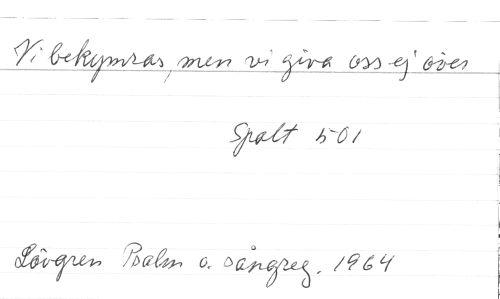 Vi bekymras, men vi giva oss ej över
Spalt 501
Lövgren Psalm o. sångreg. 1964